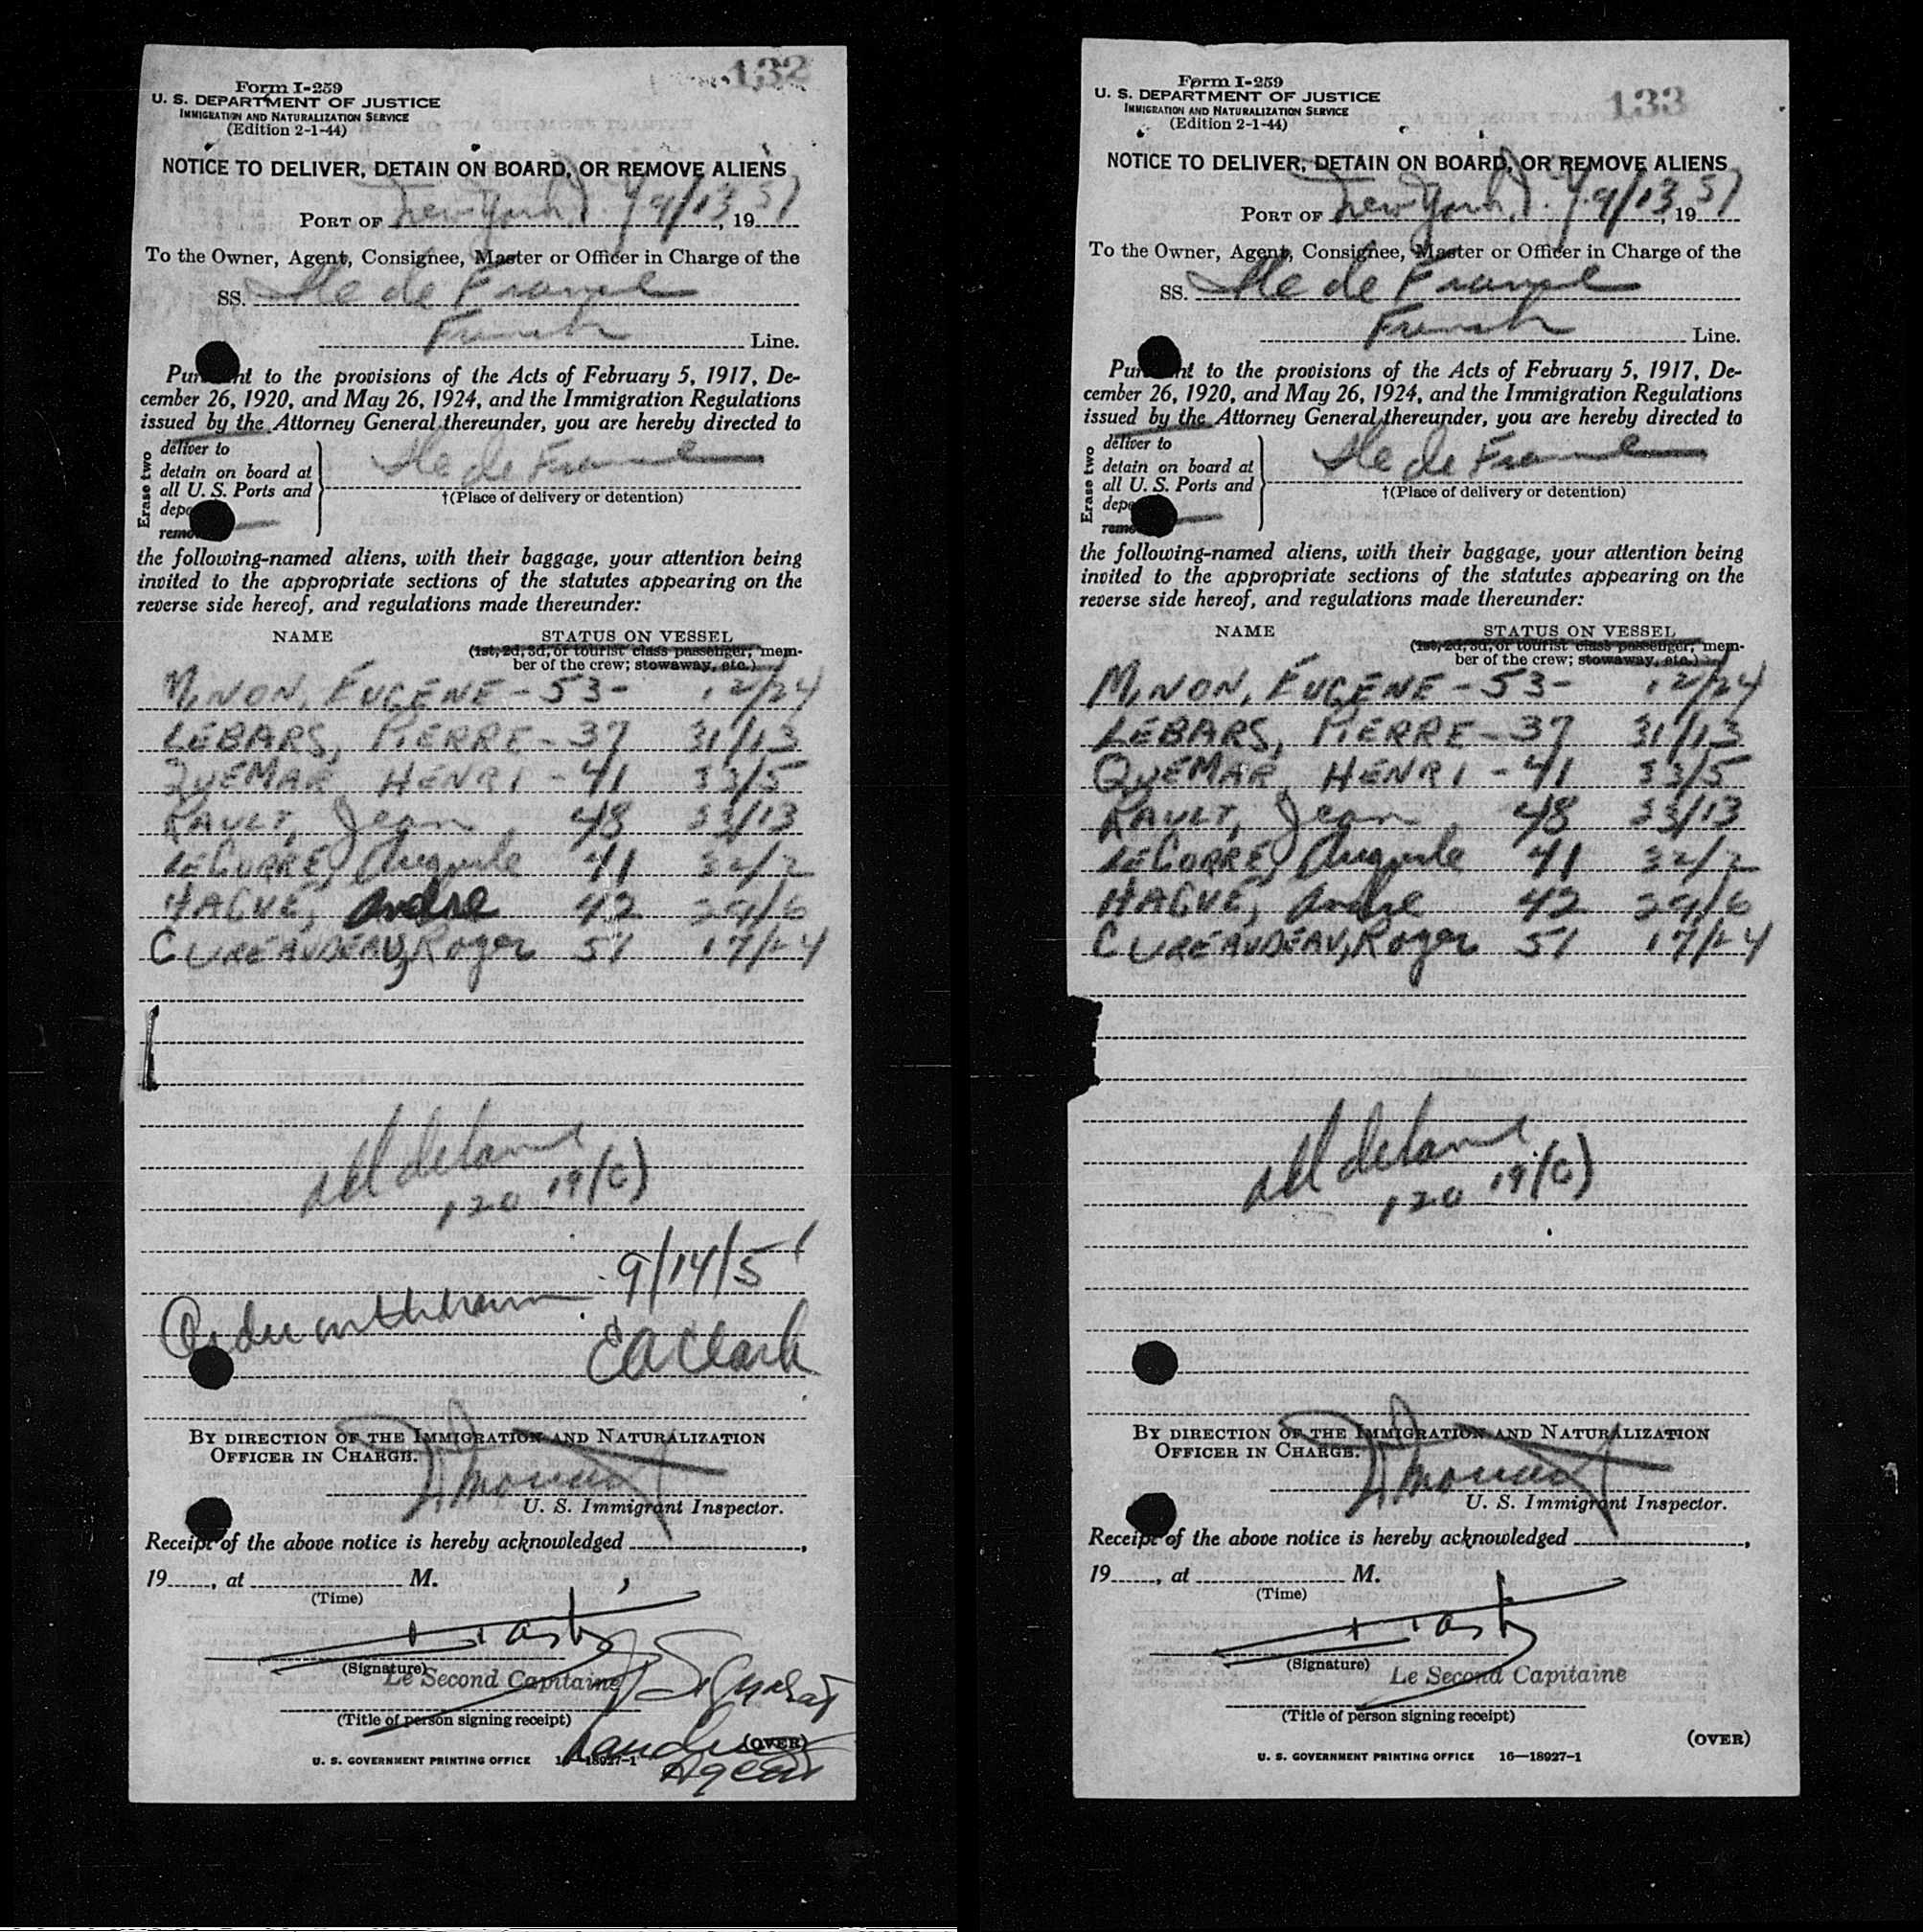 132
Form I-259
U. S. DEPARTMENT OF JUSTICE
IMMIGRATION AND NATURALIZATION SERVICE
(Edition 2-1-44)
NOTICE TO DELIVER, DETAIN ON BOARD, OR REMOVE ALIENS
PORT OF New York, N. Y. 9/13, 1951
To the Owner, Agent, Consignee, Master or Officer in Charge of the
SS. Ile de France
French Line.
Pursuant to the provisions of the Acts of February 5, 1917, De-
cember 26, 1920, and May 26, 1924, and the Immigration Regulations
issued by the Attorney General thereunder, you are hereby directed to
Erase two
deliver to
detain on board at
all U. S. Ports and
depo
remo
Ile de France
†(Place of delivery or detention)
the following-named aliens, with their baggage, your attention being
invited to the appropriate sections of the statutes appearing on the
reverse side hereof, and regulations made thereunder:
NAME STATUS ON VESSEL
(1st, 2d, 3d, or tourist class passenger; mem-
ber of the crew; stowaway, etc.)
MINON, EUGENE - 53 - 12/24
LEBARS, PIERRE - 37 31/13
QUEMAR, HENRI - 41 33/5
RAULT, Jean 48 33/13
LECORRE, Auguste 41 32/2
HAGUE, Andre 42 29/6
CUREAUDEAU, Roger 51 17/24
All detained
120 19(c)
9/14/51
Order withdrawn
EA Clark
BY DIRECTION OF THE IMMIGRATION AND NATURALIZATION
OFFICER IN CHARGE.
U. S. Immigrant Inspector.
Receipt of the above notice is hereby acknowledged ,
19 , at M.
(Time)
(Signature)
Le Second Capitaine
(Title of person signing receipt)
(OVER)
Agent
U. S. GOVERNMENT PRINTING OFFICE 16—18927-1
133
Form I-259
U. S. DEPARTMENT OF JUSTICE
IMMIGRATION AND NATURALIZATION SERVICE
(Edition 2-1-44)
NOTICE TO DELIVER, DETAIN ON BOARD, OR REMOVE ALIENS
PORT OF New York, N. Y. 9/13, 1951
To the Owner, Agent, Consignee, Master or Officer in Charge of the
SS. Ile de France
French Line.
Pursuant to the provisions of the Acts of February 5, 1917, De-
cember 26, 1920, and May 26, 1924, and the Immigration Regulations
issued by the Attorney General thereunder, you are hereby directed to
Erase two
deliver to
detain on board at
all U. S. Ports and
depo
remo
Ile de France
†(Place of delivery or detention)
the following-named aliens, with their baggage, your attention being
invited to the appropriate sections of the statutes appearing on the
reverse side hereof, and regulations made thereunder:
NAME STATUS ON VESSEL
(1st, 2d, 3d, or tourist class passenger; mem-
ber of the crew; stowaway, etc.)
MINON, EUGENE - 53 - 12/24
LEBARS, PIERRE - 37 31/13
QUEMAR, HENRI - 41 33/5
RAULT, Jean 48 33/13
LECORRE, Auguste 41 32/2
HAGUE, Andre 42 29/6
CUREAUDEAU, Roger 51 17/24
All detained
120 19(c)
BY DIRECTION OF THE IMMIGRATION AND NATURALIZATION
OFFICER IN CHARGE.
U. S. Immigrant Inspector.
Receipt of the above notice is hereby acknowledged ,
19 , at M.
(Time)
(Signature)
Le Second Capitaine
(Title of person signing receipt)
(OVER)
U. S. GOVERNMENT PRINTING OFFICE 16—18927-1